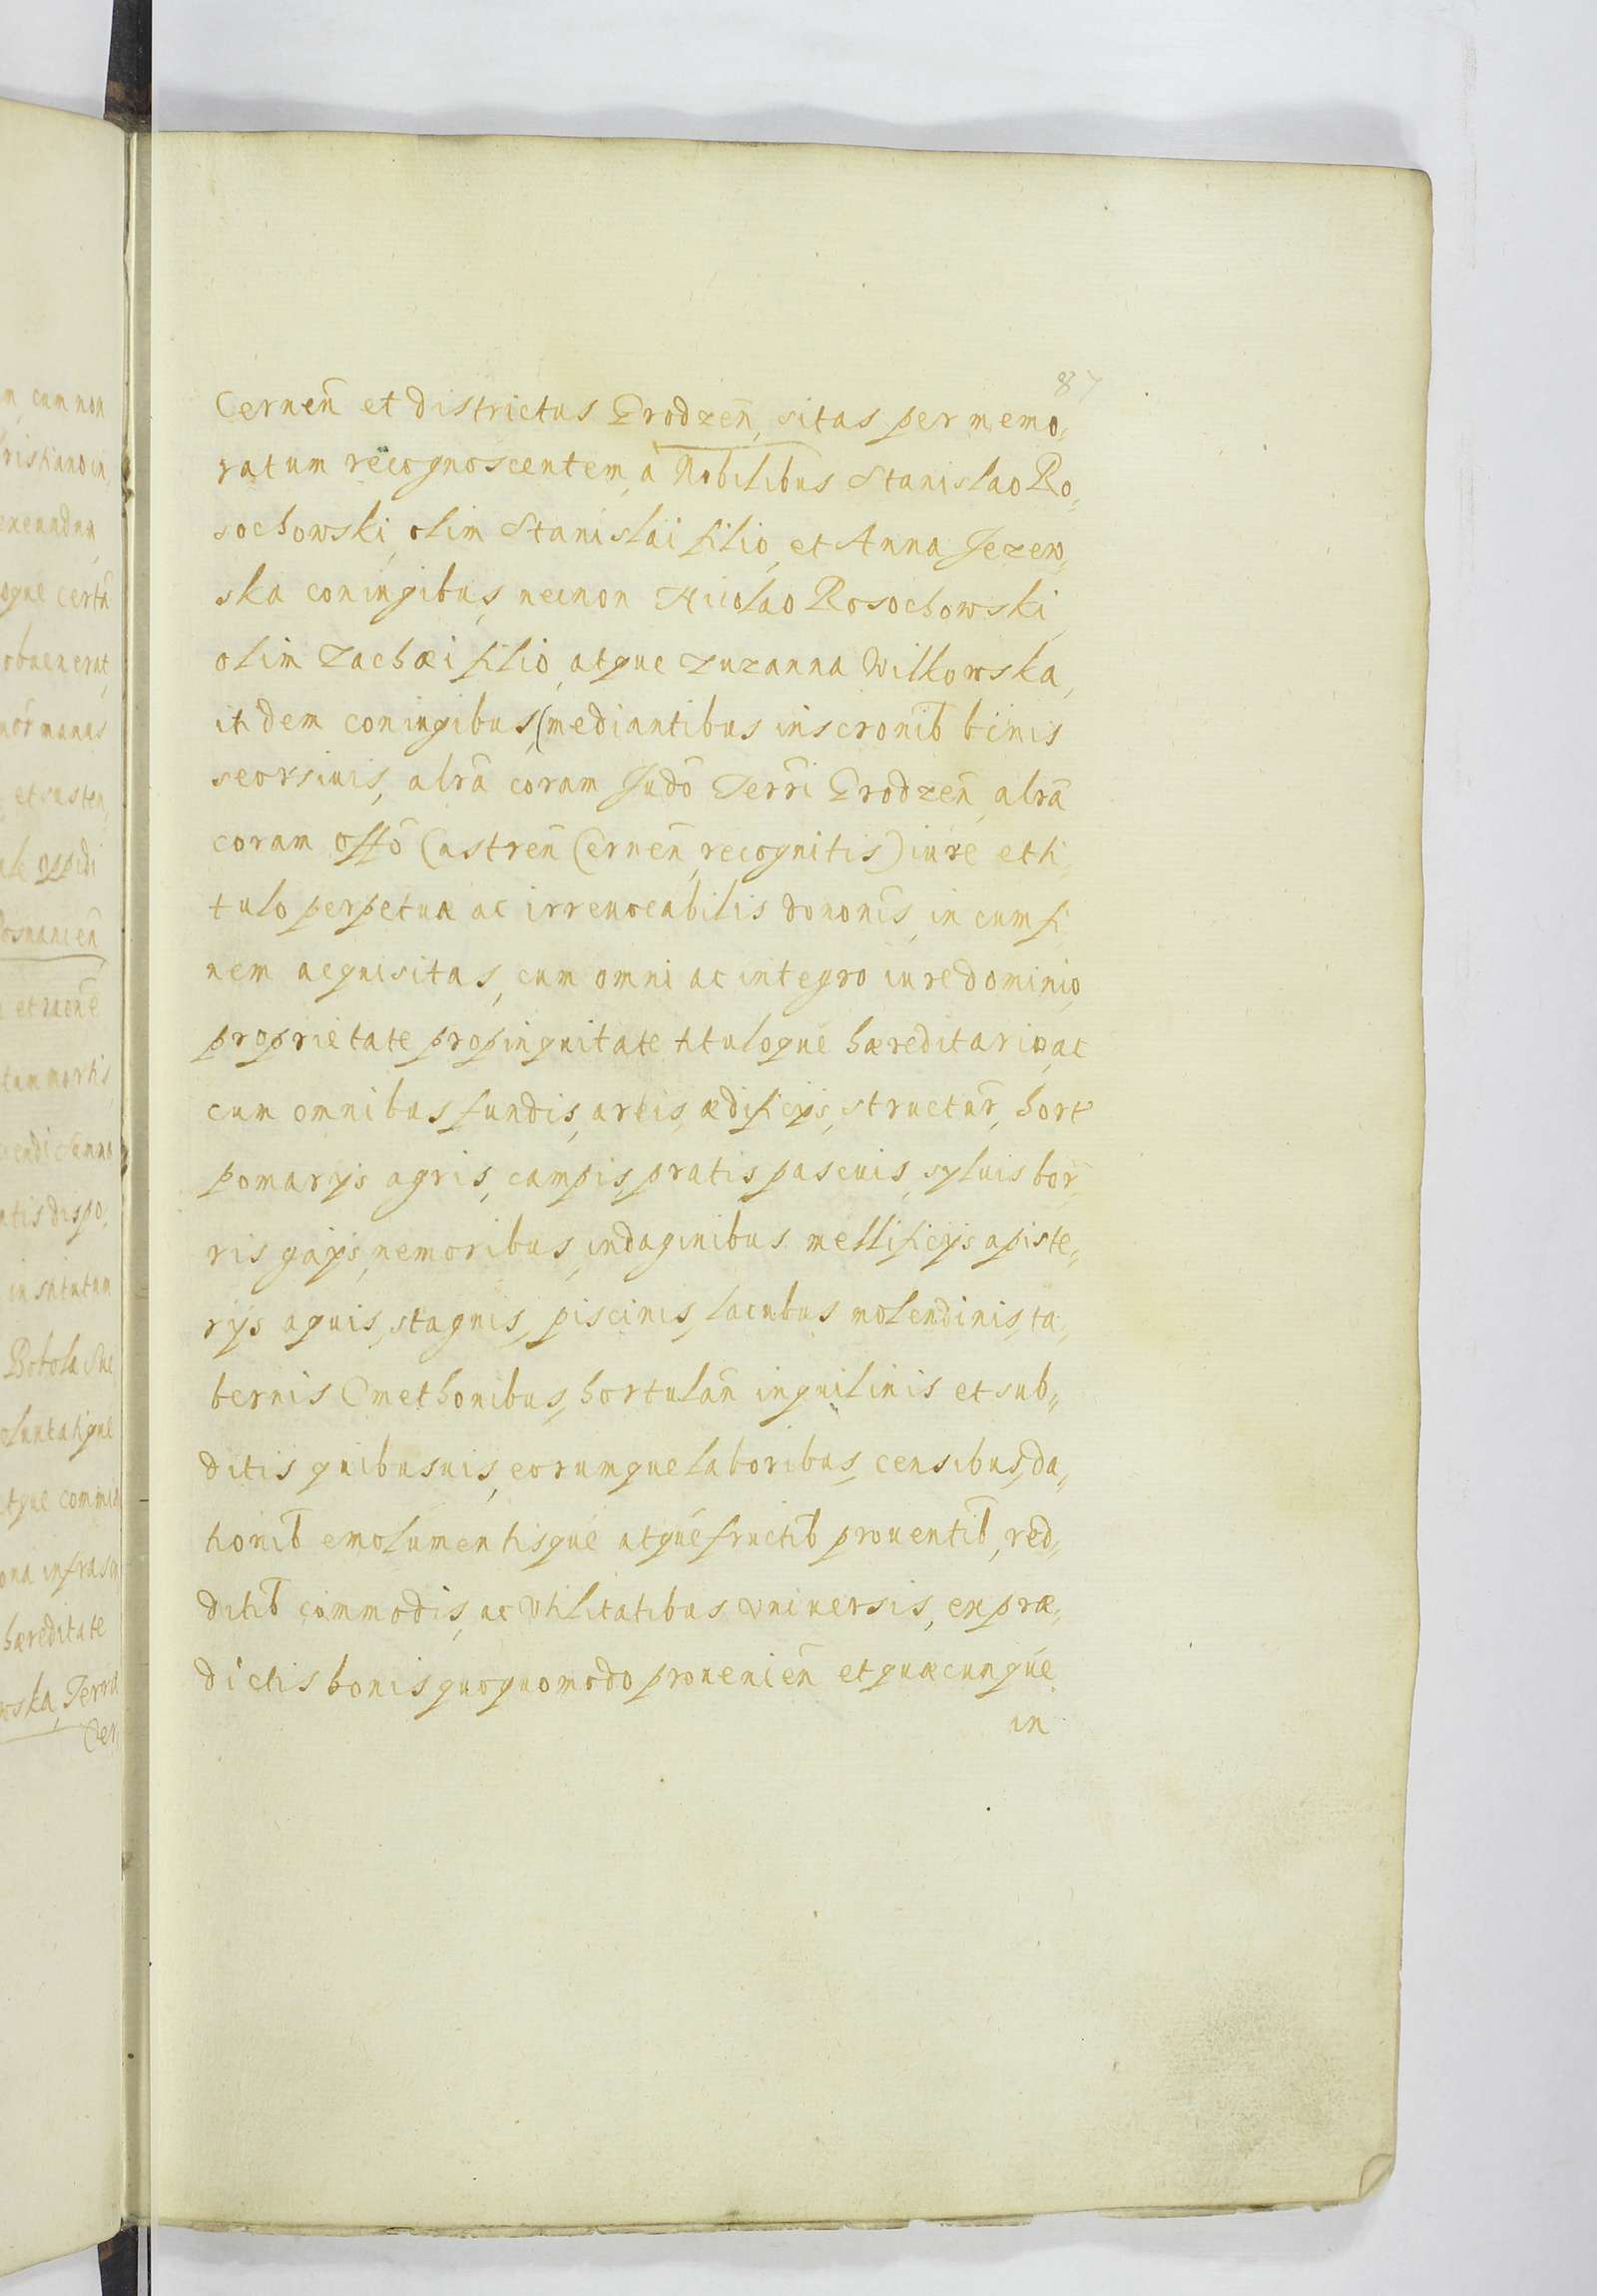 87
Cernen̄ et districtus Grodzen̄, sitas per memo,,
ratum recognoscentem, à Nobilibus Stanislao Ro,,
sochowski, olim Stanislai filio, et Anna Jezew,,
ska coniugibus, necnon Nicolao Rosochowski
olim Zachæi filio, atque Zuzanna Wilkowska,
itidem coniugibus, (mediantibus inscronib̄ binis
seorsiuis, alrā coram Judō Terrī Grodzen̄, alrā
coram Offō Castren̄ Cernen̄, recognitis) iure et ti
tulo perpetuæ ac irreuocabilis dononīs, in eum fi
nem acquisitas, cum omni ac integro iure dominio,
proprietate propinquitate tituloque hæreditario, ac
cum omnibus fundis, areis, ædificijs, structur̄, hort
pomarijs agris, campis, pratis pascuis, syluis bor,,
ris gaijs, nemoribus, indaginibus mellificijs apiste,,
rijs aquis, stagnis, piscinis, lacubus molendinis, ta,,
bernis Cmethonibus, hortulan̄ inquilinis et sub,,
ditis quibusuis, eorumque laboribus, censibus, da,,
tionib̄ emolumentisque atque fructib̄ prouentib̄, red,,
ditib̄ commodis, ac vtilitatibus vniuersis, ex præ,,
dictis bonis quoquomodo prouenien̄ et quæcunque
in
m, cum non
ristiano in
que certā
obuenerat,
et susten,
Posnanien̄
et racnē
tum mortis
atis dispo,
institutum
Botola sue
oluntatique
atque commid
ona infrascr
hæreditate
wska, Terra
Cer,